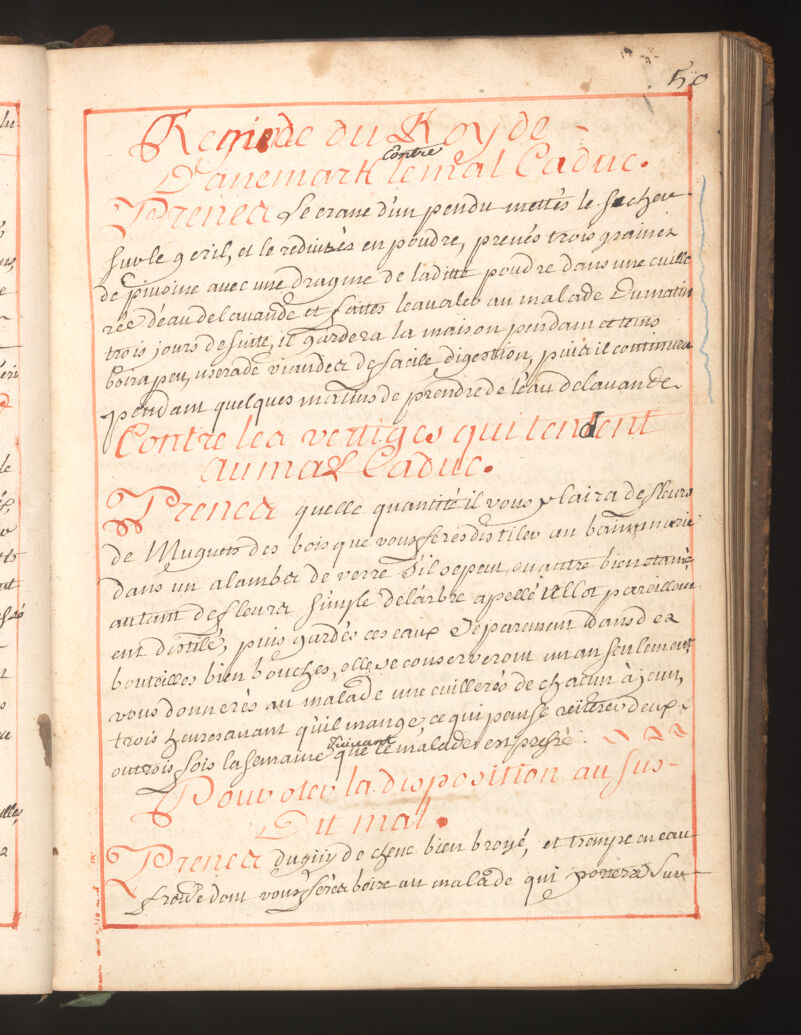 50
Remede du Roy de
Danemark contre le mal Caduc.
Prenes Le crane d'un pendu mettés le secher
sur le geril, et le reduisés en poudre, prenés trois graines
de pivoine avec une dragme de laditte poudre dans une cuille
rée d'eau de lavande et faittes leavaler au malade Du matin
trois jours de suitte, il gardera la maison pendant ce tems
boira peu, usera de viandes de facile digestion, puis il continuera
pendant quelques matins de prendre de l'eau de lavande.
Contre les vertiges qui tendent
au mal Caduc.
Prenes quelle quantité il vous plaira de fleurs
de Muguets des bois que vous ferés distiler au bainmarie
dans un alambic de verre S'il se peut, ou autre bien etamé
autant de fleurs simple de l'arbre apellé tillot pareillem
ent distilé, puis gardés ces eaux Separement dans des
bouteilles bien bouchés, elle se conserveront un an seulement
vous donnerés au malade une cuillerés de chacun à jeun,
trois heures avant qu'il mange, ce qui peut se reiterer deux
ou trois fois la semaine suivant que le malade en presse.
Pour oter la disposition au sus-
Dit mal.
Prenes du guy de chene bien broyé, et trempé en eau
froide dont vous ferés boire au malade qui portera sur